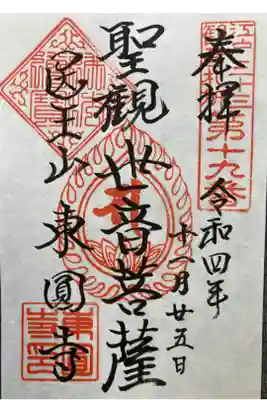 奉拝
第十九番
令和四年
十一月廿五日
聖観世音菩薩
医王山 東圓寺